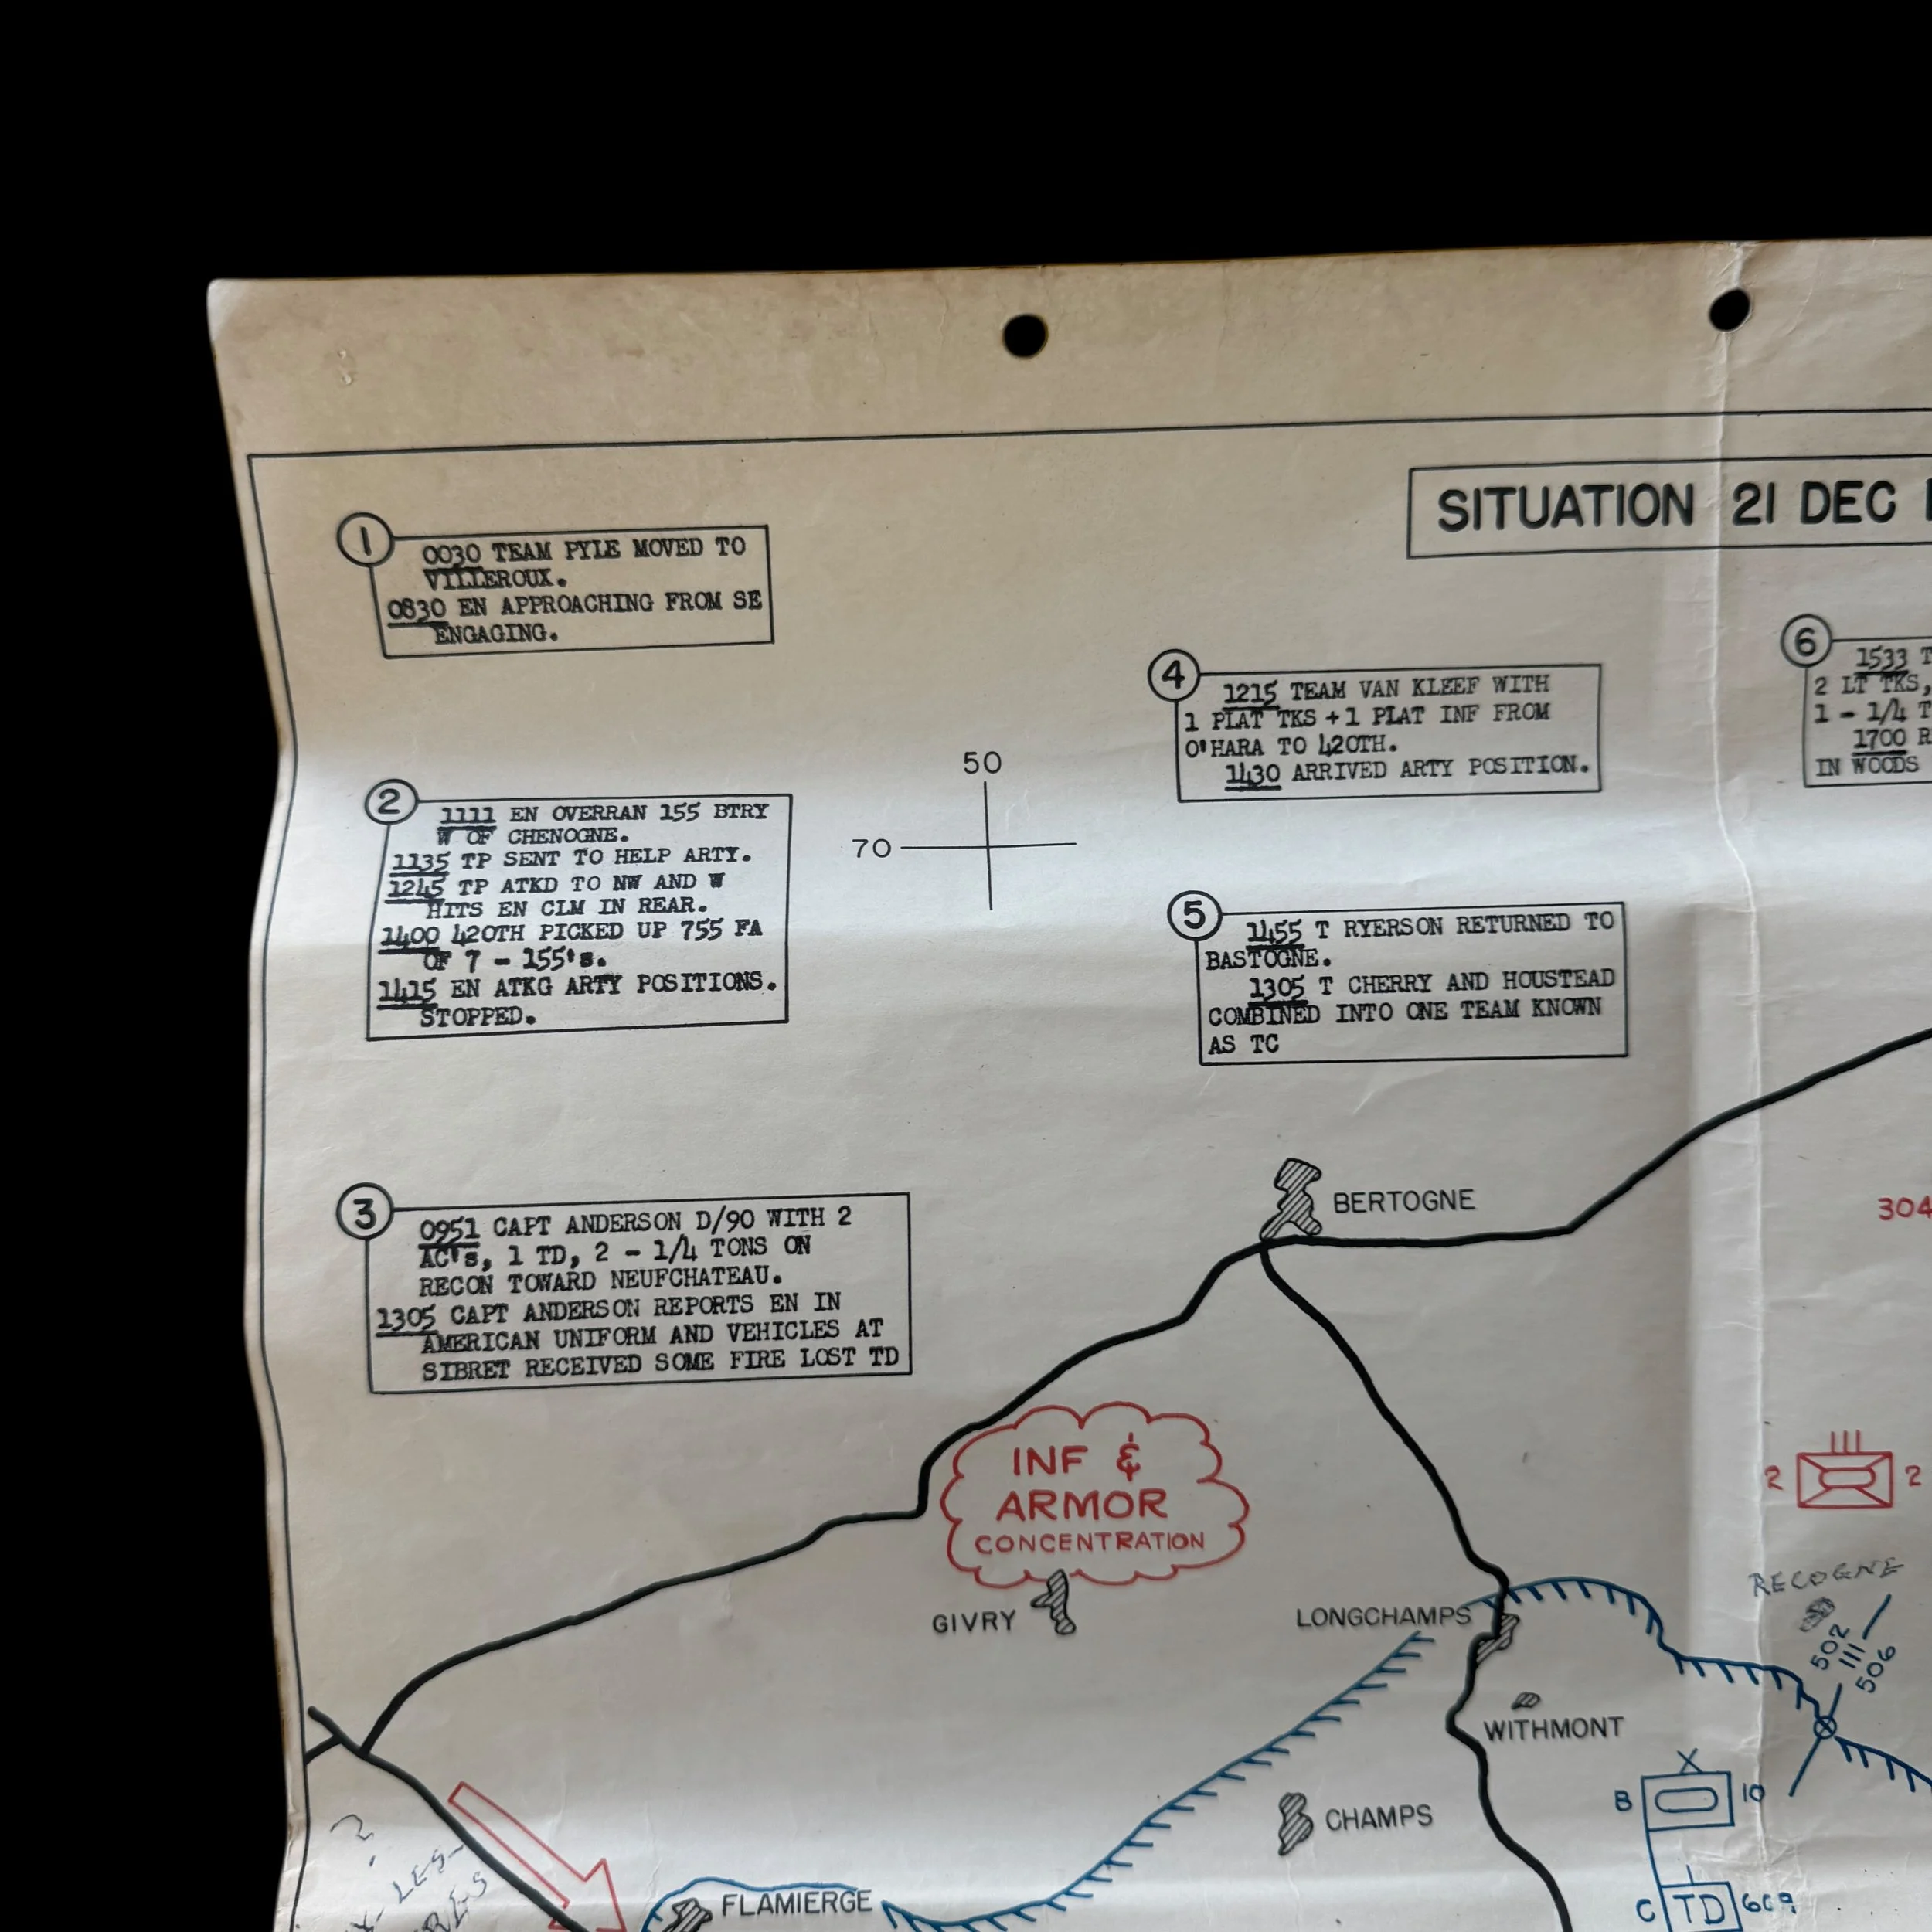 SITUATION 21 DEC
1
0030 TEAM PYLE MOVED TO
VILLEROUX.
0830 EN APPROACHING FROM SE
ENGAGING.
2
1111 EN OVERRAN 155 BTRY
W OF CHENOGNE.
1135 TP SENT TO HELP ARTY.
1245 TP ATKD TO NW AND W
HITS EN CLM IN REAR.
1400 420TH PICKED UP 755 FA
OF 7 - 155's.
1415 EN ATKG ARTY POSITIONS.
STOPPED.
3
0951 CAPT ANDERSON D/90 WITH 2
AC's, 1 TD, 2 - 1/4 TONS ON
RECON TOWARD NEUFCHATEAU.
1305 CAPT ANDERSON REPORTS EN IN
AMERICAN UNIFORM AND VEHICLES AT
SIBRET RECEIVED SOME FIRE LOST TD
50
70
4
1215 TEAM VAN KLEEF WITH
1 PLAT TKS + 1 PLAT INF FROM
O'HARA TO 420TH.
1430 ARRIVED ARTY POSITION.
5
1455 T RYERSON RETURNED TO
BASTOGNE.
1305 T CHERRY AND HOUSTEAD
COMBINED INTO ONE TEAM KNOWN
AS TC
6
1533 T
2 LT TKS,
1 - 1/4 T
1700 R
IN WOODS
BERTOGNE
304
INF &
ARMOR
CONCENTRATION
2 2
GIVRY
LONGCHAMPS
RECOGNE
502
III
506
WITHMONT
B X 10
CHAMPS
C TD 609
FLAMIERGE
?
LES-